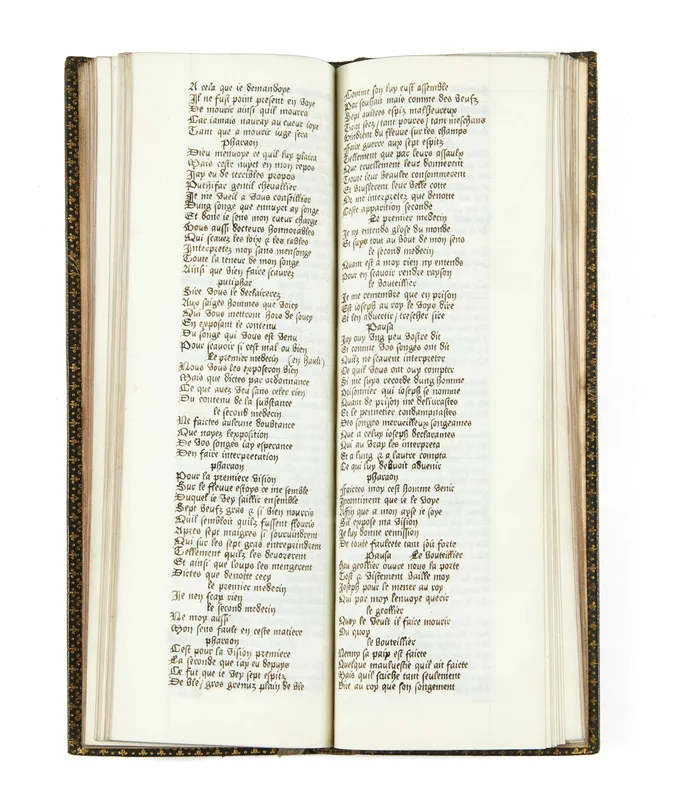 A cela que ie demandoye
Jl ne fust point present en voye
De mourir ainsi quil mourra
Car iamais nauray au cueur ioye
Tant que a mourir iuge sera
Pharaon
Dieu menuoye ce quil luy plaira
Mais ceste nuyct en mon repos
Jay eu de terribles propos
Putiffar gentil cheuallier
Je me vueil a vous conseillier
Dung songe que ennuyct ay songe
Et donc ie sens mon cueur charge
Vous aussi docteurs honnorables
Qui scauez les loix & les tables
Jnterpretez moy sans mensonge
Toute la teneur de mon songe
Ainsi que bien faire scaurez
putiphar
Sire vous le declairerez
Aux saiges hommes que voicy
Qui vous mettront hors de soucy
En exposant le contenu
Du songe qui vous est venu
Pour scauoir si cest mal ou bien
Le premier medecin (en hault)
Nous vous les exposeron bien
Mais que dictes par ordonnance
Ce que auez veu sans celer rien
Du contenu de la substance
le second medecin
Ne faictes aulcune doubtance
Que nayez lexposition
De vos songes iay esperance
Den faire interpretation
pharaon
Pour la premiere vision
Sur le fleuue estoys ce me semble
Duquel ie vey saillir ensemble
Sept beufz gras & si bien nourris
Quil sembloit quilz fussent flouris
Apres sept maigres si souruindrent
Qui sur les sept gras entreprindrent
Tellement quilz les deuorerent
Et ainsi que loups les mengerent
Dictes que denotte cecy
le premier medecin
Je nen scay rien
le second medecin
Ne moy aussi
Mon sens fault en ceste matiere
pharaon
Cest pour la vision premiere
La seconde que iay eu depuys
Ce fut que ie vey sept espitz
De ble / gros grenuz plain de ble
Comme son luy eust assemble
Par souhait mais comme des beufz
Sept aultres espiz malheureux
Tant secz / tant poures / tant meschans
Vindrent du fleuue sur les champs
Faire guerre aux sept espitz
Tellement que par leurs assaulx
Que cruellement leur donnerent
Toute leur beaulte consommerent
Et bruslerent leur belle cotte
Or me interpretez que denotte
Ceste apparition seconde
Le premier medecin
Je ny entends glose du monde
Et suys tout au bout de mon sens
le second medecin
Quant est a moy rien ny entends
Pour en scauoir rendre rayson
le bouteillier
Je me remembre que en prison
Est ioseph au roy le vops dire
Et len aduertir / trescher sire
Pausa
Jay ouy vng peu vostre dit
Et comme vos songes ont dit
Quilz ne scauent interpreter
Ce quil vous ont ouy compter
Si me suys recorde dung homme
Prisonnier qui ioseph se nomme
Quant de prison me deliurastes
Et le pennetier condampnastes
Des songes merueilleux songeames
Que a celuy ioseph declarames
Qui au vray les interpreta
Et a lung & a lautre compta
Ce qui luy debuoit aduenir
pharaon
Faictes moy cest homme venir
Jncontinent que ie le voye
Affin que a mon ayse ie soye
Sil expose ma vision
Je luy donne remission
De toute faulcete tant soit forte
Pausa Le Bouteillier
Hau geollier ouure nous la porte
Tost & vistement baille moy
Joseph pour le mener au roy
Qui par moy lenuoye querir
le geollier
Quoy le veult il faire mourir
Du quoy
le bouteillier
Nenny sa paix est faicte
Quelque mauluestie quil ait faicte
Mais quil saiche tant seulement
Dire au roy que son songement